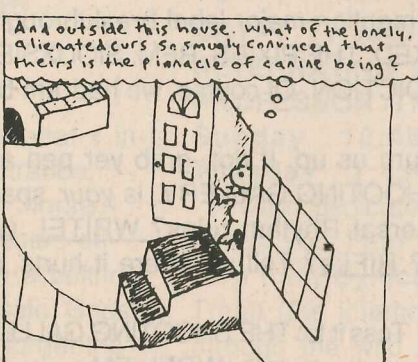 And outside this house. What of the lonely,
alienated curs so smugly convinced that
theirs is the pinnacle of canine being?